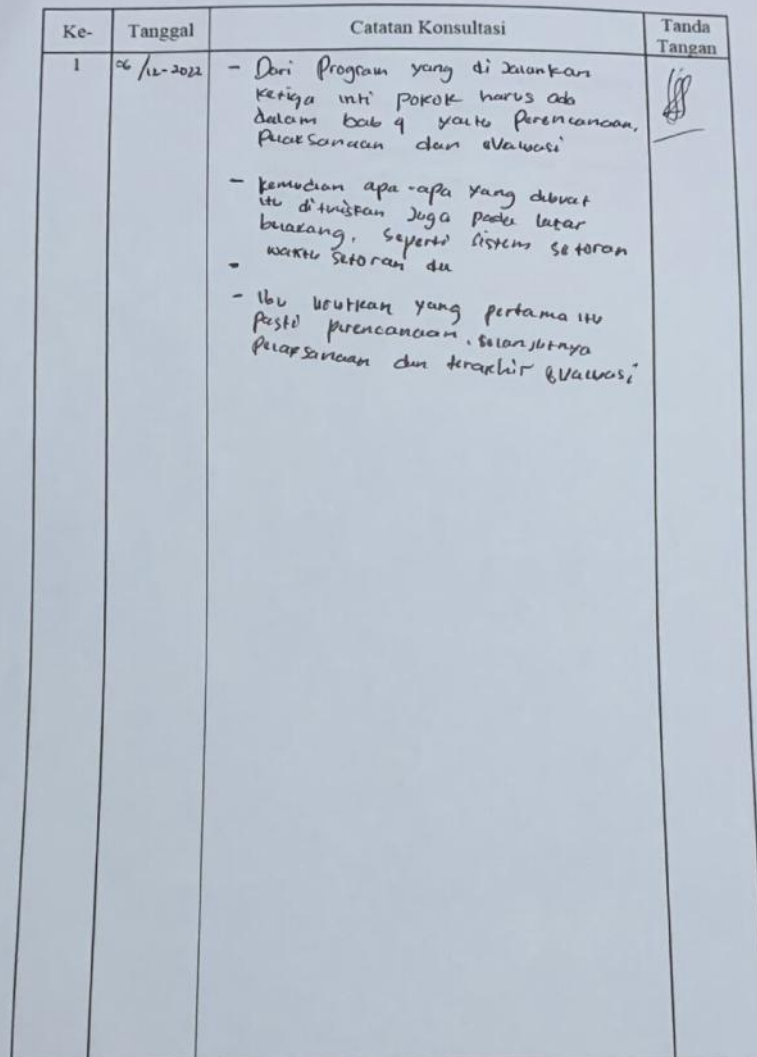 Ke- Tanggal Catatan Konsultasi Tanda Tangan
1 06/12-2022 - Dari Program yang di Jalankan
ketiga inti pokok harus ada
dalam bab 4 yaitu Perencanaan,
Pelaksanaan dan evaluasi
- kemudian apa-apa yang dibuat
itu dituliskan Juga pada latar
belakang, seperti sistem setoran
waktu setoran du
-
- Ibu urutkan yang pertama itu
pasti perencanaan, selanjutnya
pelaksanaan dan terakhir evaluasi